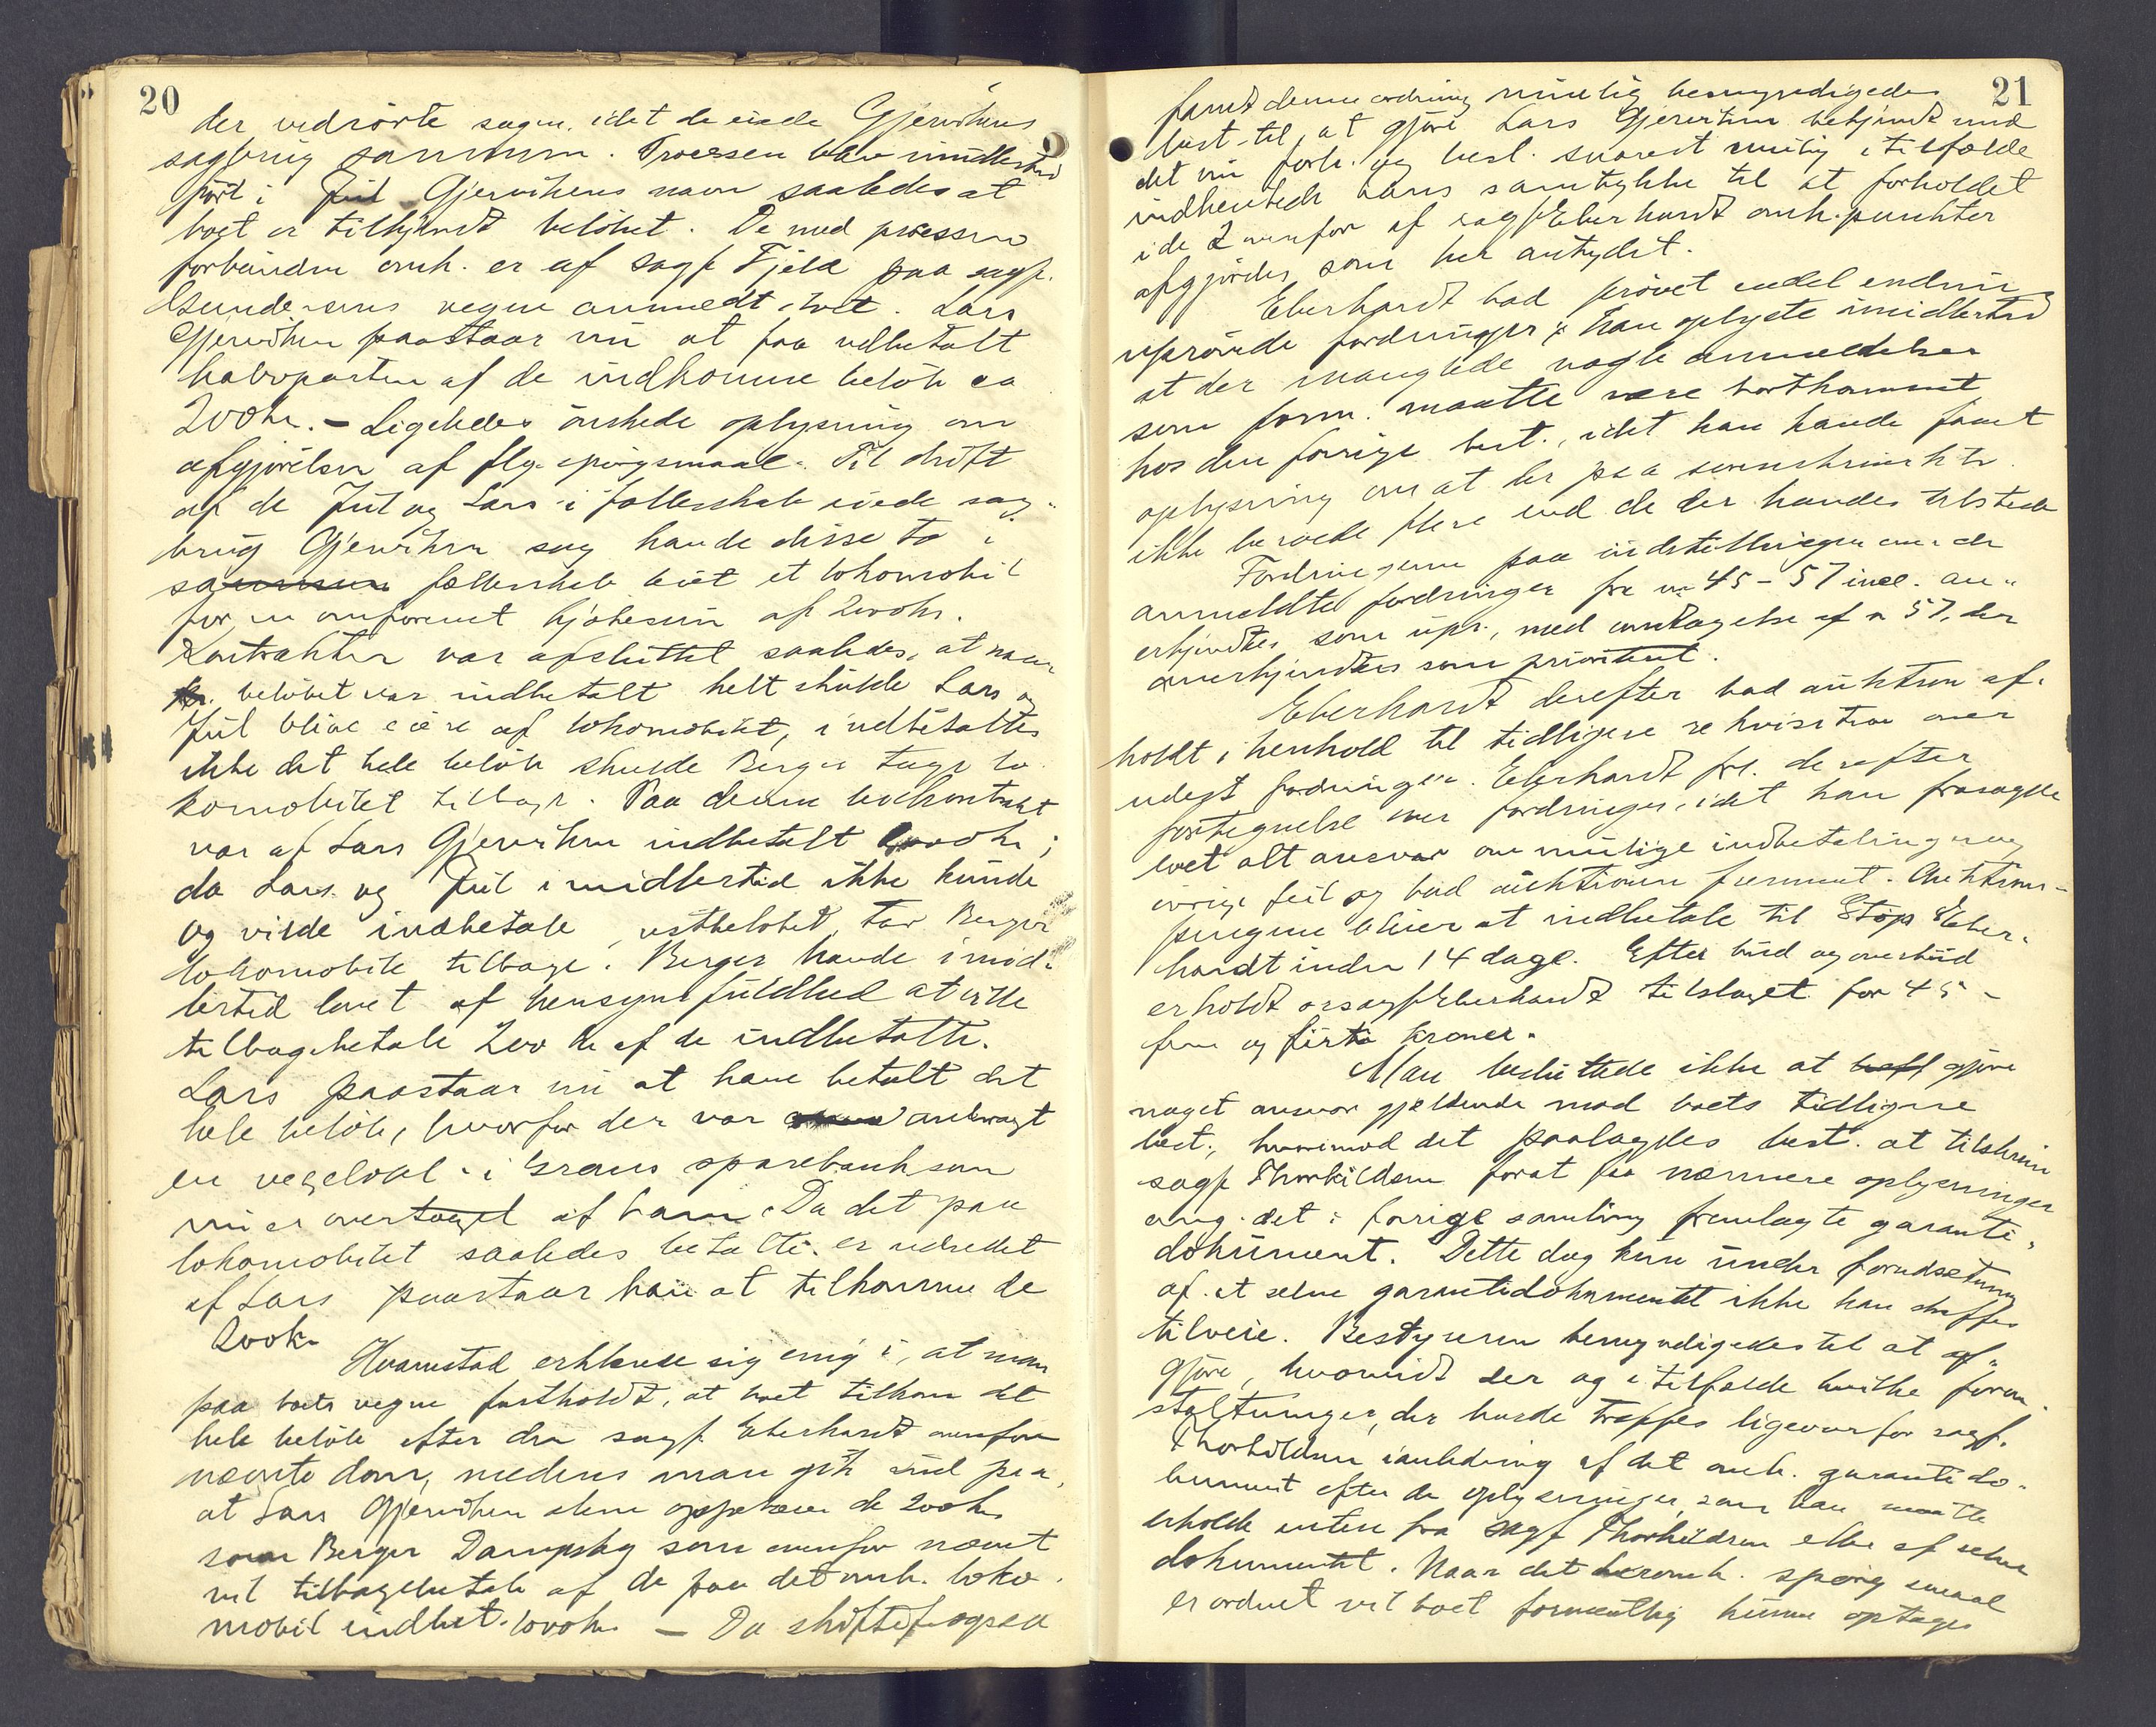 20
der vedrørte sagen, idet de eiede Gjervikens
sagbrug sammen. Processen blev imidlertid
ført i Juul Gjervikens navn saaledes at
boet er tilkjendt beløbet. De med processen
forbundne omk. er af sagf. Fjeld paa sagf.
Gundersens vegne anmeldt i boet. Lars
Gjerviken paastaar nu at faa udbetalt
halvparten af de indkomne beløb ca
200 kr. – Ligeledes ønskede oplysning om
afgjørelsen af flg. spørgsmaal. Til drift
af de Juul og Lars i fællesskab eiede sag-
brug Gjerviken sag havde disse to i
fællesskab leiet et lokomobil
for en omforenet kjøbesum af 2000 kr.
Kontrakten var afsluttet saaledes, at naar
beløbet var indbetalt helt skulde Lars og
Juul blive eiere af lokomobilet, indbetaltes
ikke det hele beløb skulde Berger tage lo-
komobilet tilbage. Paa denne leiekontrakt
var af Lars Gjerviken indbetalt 1000 kr;
da Lars og Juul imidlertid ikke kunde
og vilde indbetale restbeløbet, tar Berger
lokomobile tilbage. Berger havde imid-
lertid lovet af hensynsfuldhed at ville
tilbagebetale 200 kr af de indbetalte.
Lars paastaar nu at have betalt det
hele beløb, hvorfor der var anbragt
en vexelobl. i Grans sparebank som
nu er overtaget af ham. Da det paa
lokomobilet saaledes betalte er udredet
af Lars paastaar han at tilkomme de
200 kr
Hvamstad erklærede sig enig i, at man
paa boets vegne fastholdt, at boet tilkom det
hele beløb efter den sagf. Eberhardt ovenfor
nævnte dom, medens man gik ind paa,
at Lars Gjerviken alene oppebærer de 200 kr
som Berger Dampsag som ovenfor nævnt
vil tilbagebetale af de paa det omh. loko-
mobil indbet. 1000 kr. – Da skiftef. ogsaa
21
fandt denne ordning rimelig bemyndigedes
best. til, at gjøre Lars Gjerviken bekjendt med
det nu forh. og besl. snarest mulig i tilfælde
indhentede hans samtykke til at forholdet
i de 2 ovenfor af sagf. Eberhardt omh. punkter
afgjørdes som her antydet.
Eberhardt bad prøvet endel endnu
uprøvede fordringer; han oplyste imidlertid
at der manglede nogle anmeldelser
som form. maatte være bortkommet
hos den forrige best., idet han havde faaet
oplysning om at der paa sorenskriverktr.
ikke beroede flere end de der havdes tilstede
Fordringerne paa indstillingen over de
anmeldte fordringer fra nr 45 – 57 incl. an-
erkjendtes som upr., med undtagelse af nr 57, der
anerkjendtes som prioriteret.
Eberhardt derefter bad auktion af-
holdt i henhold til tidligere rekvisition over
udest. fordringer. Eberhardt frl. derefter
fortegnelse over fordringer, idet han frasagde
boet alt ansvar om mulige indbetalinger og
øvrige feil og bad auktionen fremmet. Auktions-
pengene bliver at indbetale til Stop Eber-
hardt inden 14 dage. Efter bud og overbud
erholdt orsagf. Eberhardt tilslaget for 45 –
fem og firti kroner.
Man besluttede ikke at gjøre
noget ansvar gjældende mod boets tidligere
best., hvorimod det paalagdes best. at tilskrive
sagf. Thorkildsen forat faa nærmere oplysninger
ang. det i forrige samling fremlagte garanti-
dokument. Dette dog kun under forudsætning
af at selve garantidokumentet ikke kan skaffes
tilveie. Bestyreren bemyndigedes til at af-
gjøre, hvorvidt der og i tilfælde hvilke foran-
staltninger, der burde træffes ligeoverfor sagf.
Thorkildsen i anledning af det omh. garantido-
kument efter de oplysninger, som han maatte
erholde enten fra sagf. Thorkildsen eller af selve
dokumentet. Naar det heromh. spørgsmaal
er ordnet vil boet formentlig kunne optages